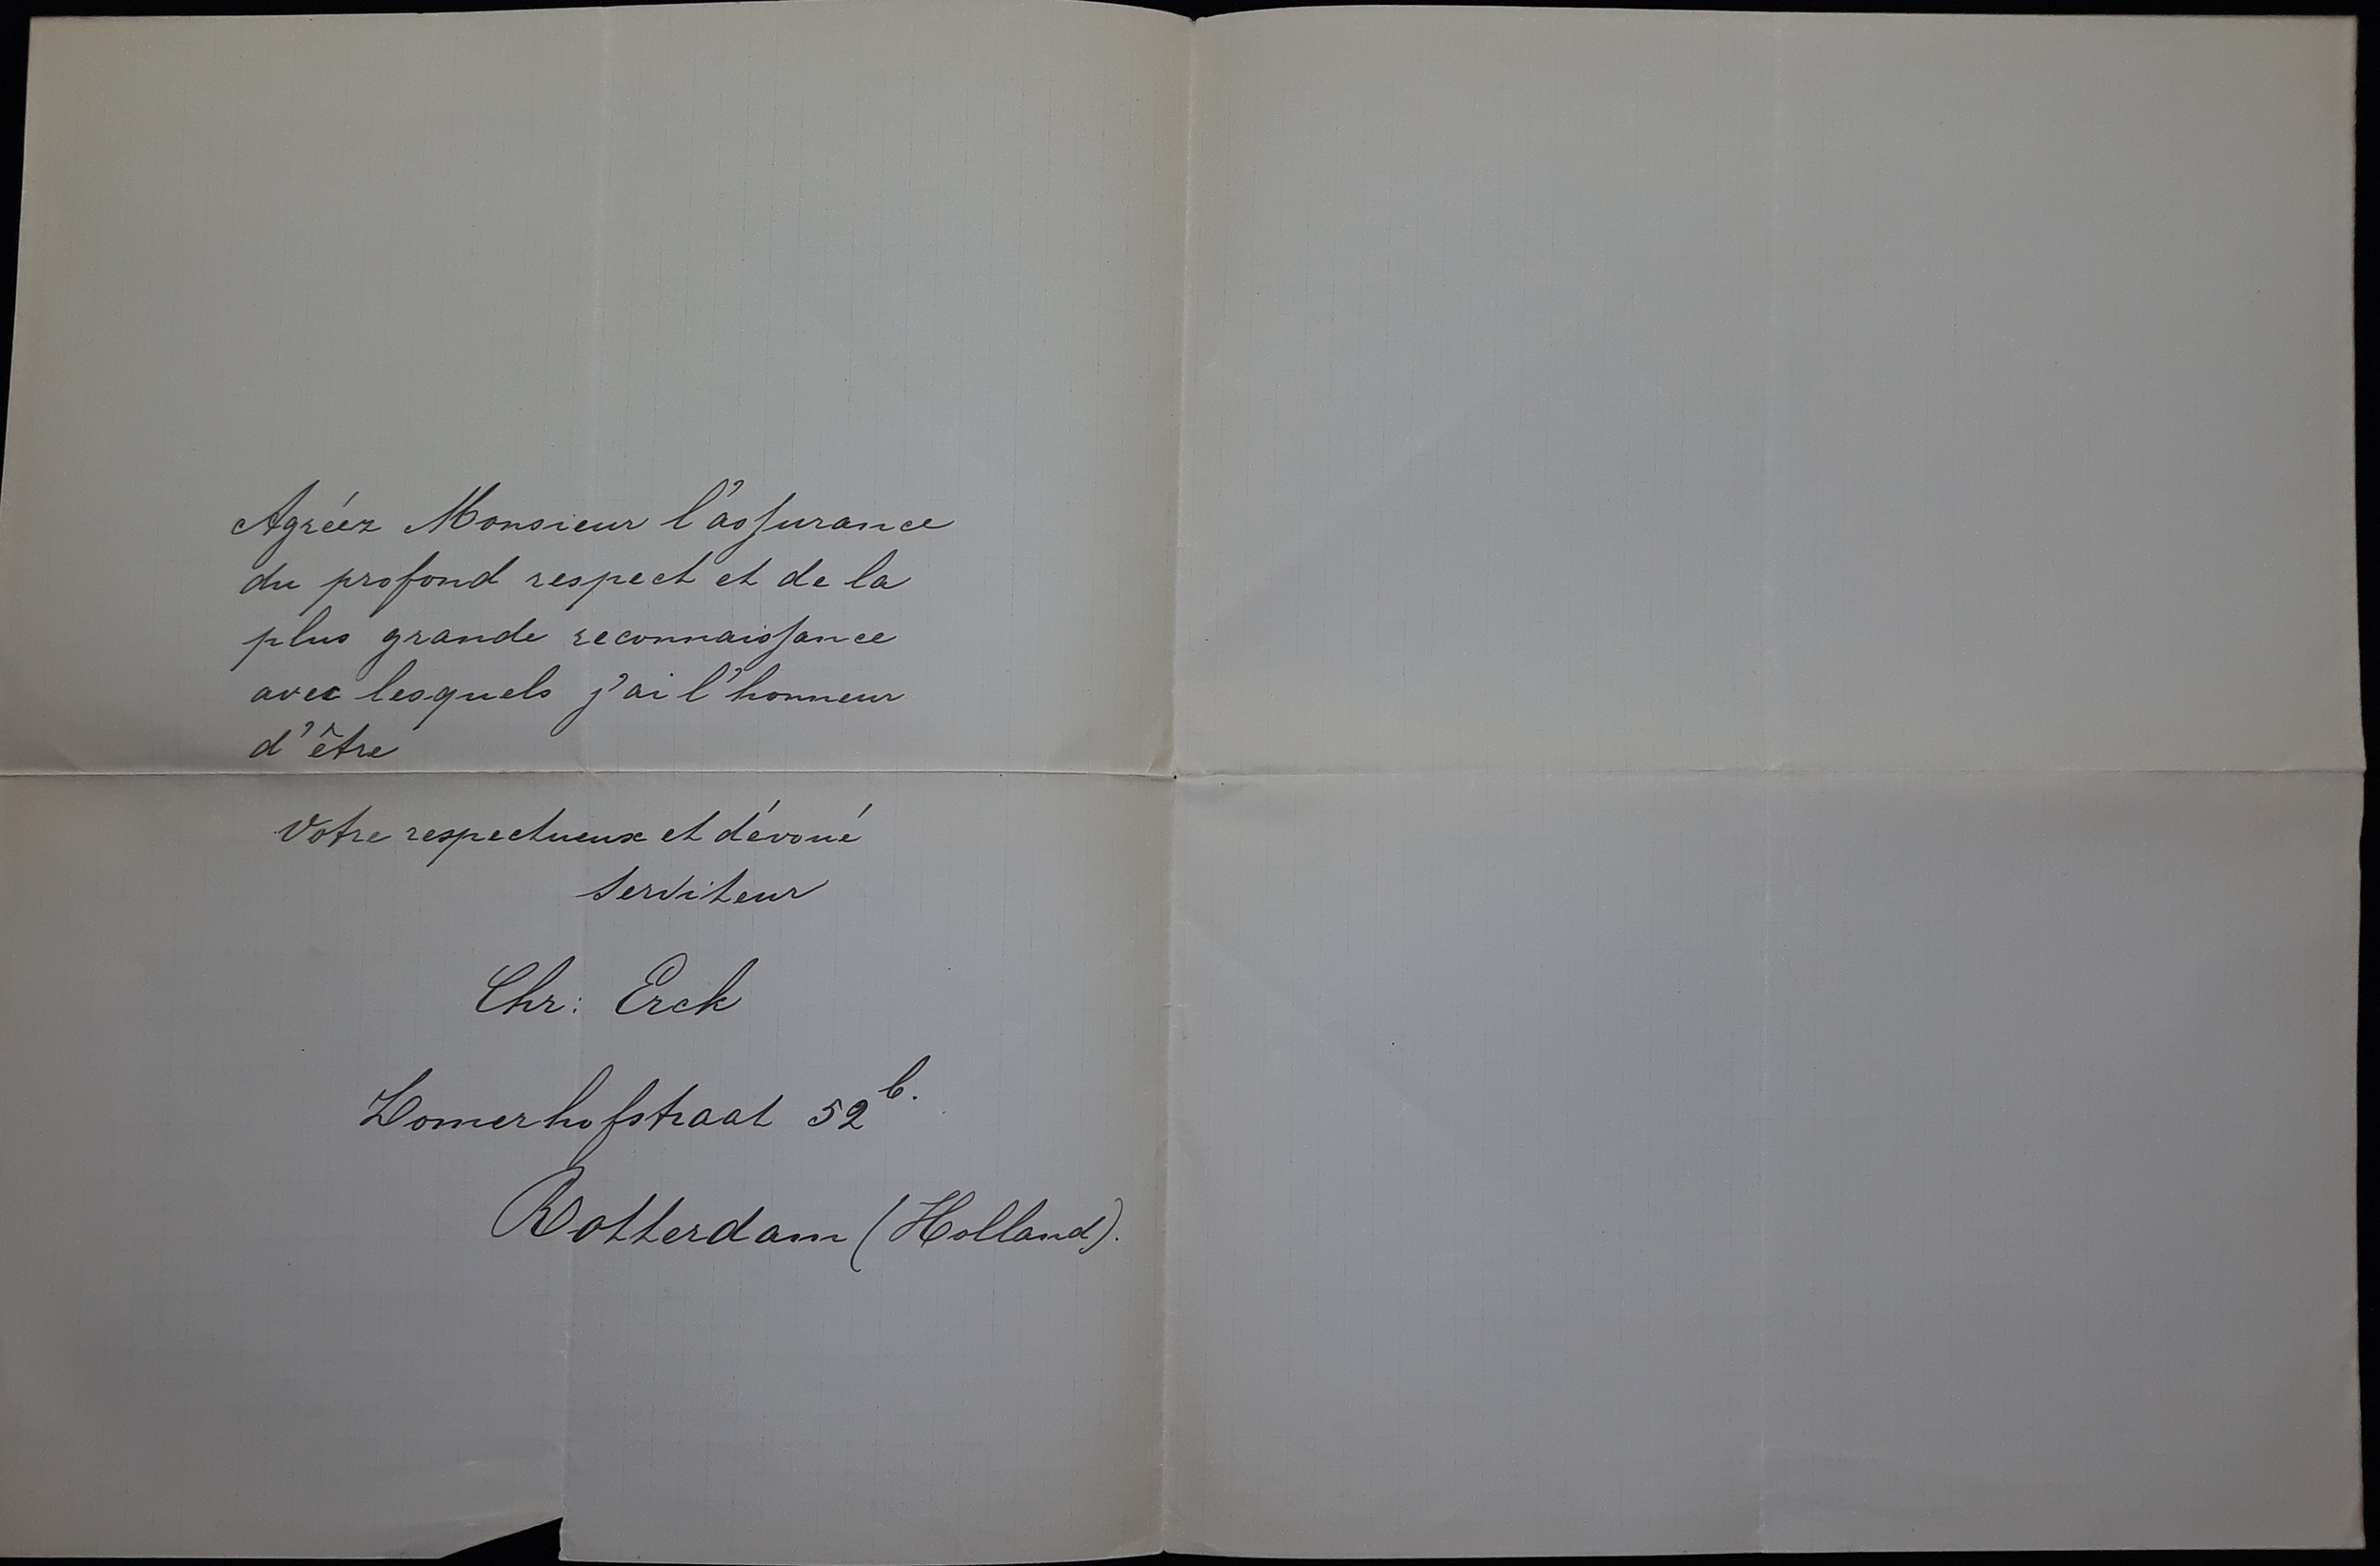 Agréez Monsieur l'assurance
du profond respect et de la
plus grande reconnaissance
avec lesquels j'ai l'honneur
d'être
Votre respectueux et dévoué
serviteur
Chr: Erck
Zomerhofstraat 52b.
Rotterdam (Holland).